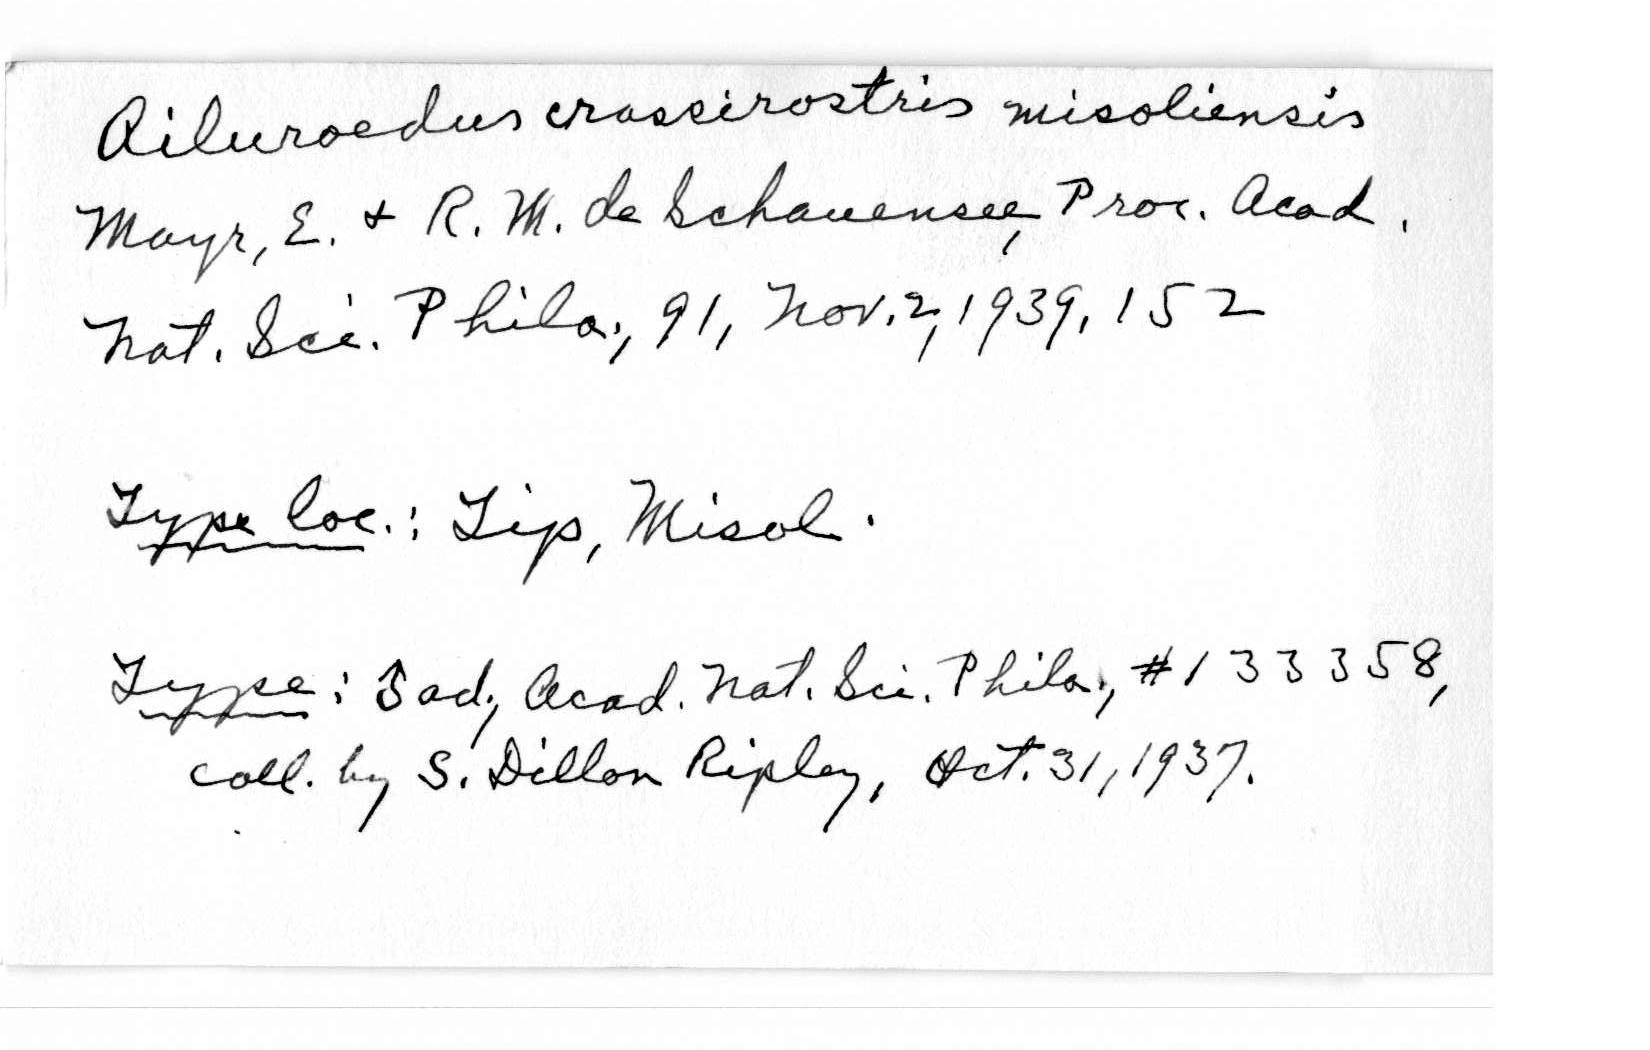 Ailuroedus crassirostris misoliensis
Mayr, E. + R. M. de Schauensee, Proc. Acad.
Nat. Sci. Phila., 91, Nov. 2, 1939, 152
Type loc.: Tip, Misol.
Type: ♂ ad., Acad. Nat. Sci. Phila., #133358,
coll. by S. Dillon Ripley, Oct. 31, 1937.